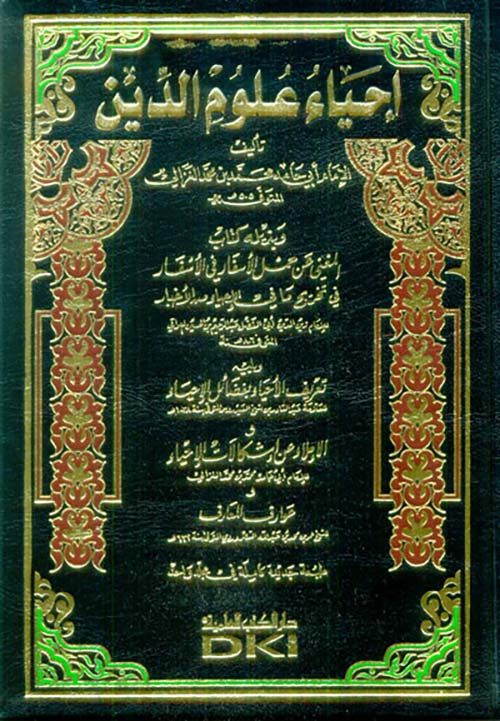 إحياء علوم الدين
تأليف
الإمام أبي حامد محمد بن محمد الغزالي
المتوفى ٥٠٥ هـ
وبذيله كتاب
المغني عن حمل الأسفار في الأسفار
في تخريج ما في الإحياء من الأخبار
وليه
تعريف الأحياء بفضائل الإحياء
و
الإملاء عن إشكالات الإحياء
و
عوارف المعارف
طبعة جديدة كاملة في مجلد واحد
دار الكتب العلمية
DKi